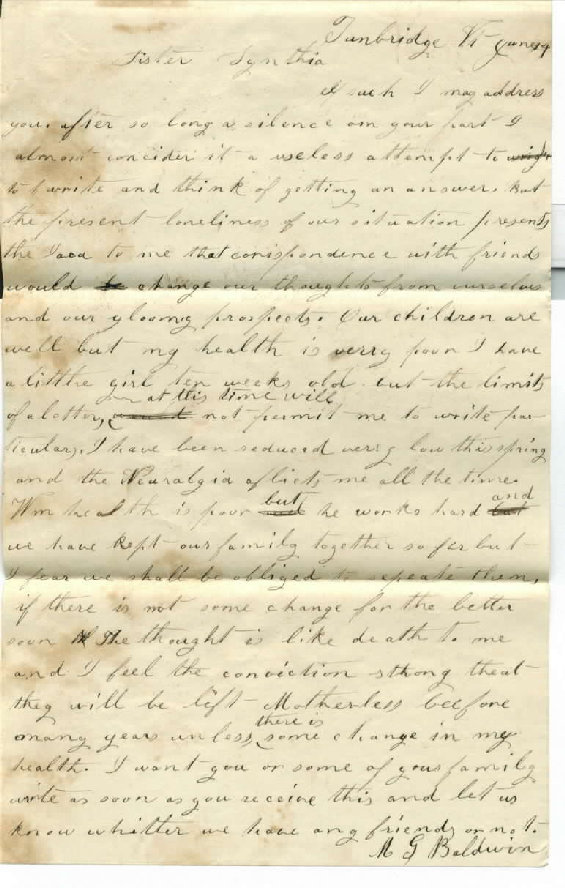 Tunbridge Vt June 19
Sister Synthia
If such I may address
you, after so long a silence on your part I
almost concider it a useless attempt to
to write and think of getting an answer. but
the present loneliness of our situation presents
the Idea to me that corrispondence with friends
would be change our thoughts from ourselves
and our gloomy prospects. Our children are
well but my health is verry poor I have
a little girl ten weeks old. but the limits
at this time will
of a letter, not permit me to write par-
ticulars, I have been reduced verry low this spring
and the Neuralgia aflicts me all the time.
Wm health is poor but he works hard and
we have kept our family together so fer but
I fear we shall be obliged to sepeate them,
if there is not some change for the better
soon the thought is like death to me
and I feel the conviction strong theat
they will be left Motherless beefore
there is
many years unless, some change in my
health. I want you or some of your family
write as soon as you receive this and let us
know whitter we have any friends or not.
M G Baldwin